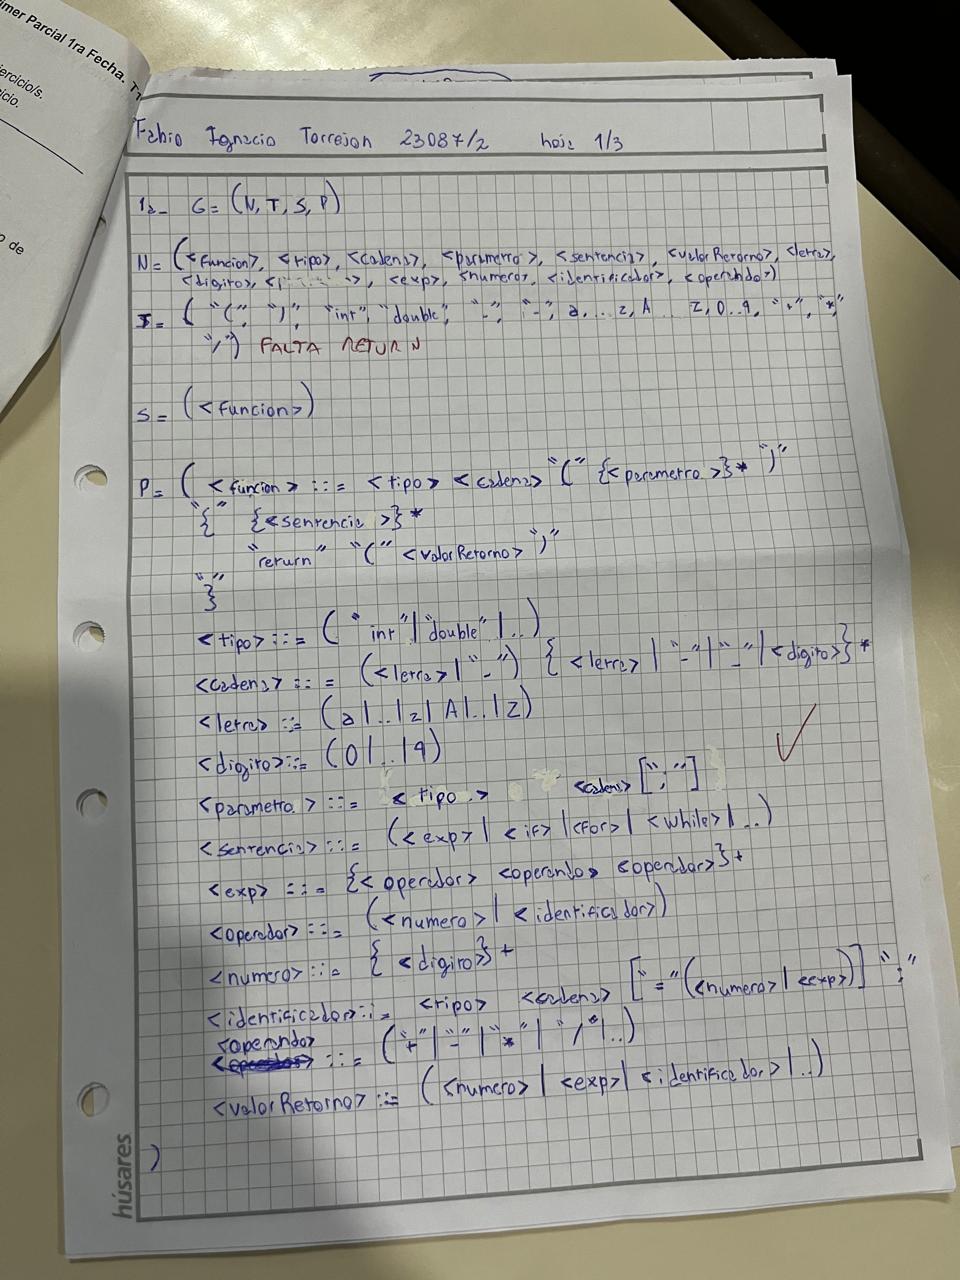 imer Parcial 1ra Fecha. T
ercicio/s.
icio.
o de
Fabio Ignacio Torrejon 23087/2 hoja 1/3
1a- G= (N, T, S, P)
N= (<funcion>, <tipo>, <cadena>, <parametro>, <sentencia>, <valorRetorno>, <letra>,
<digito>, <exp>, <numero>, <identificador>, <operando>)
T= ( "(", ")", "int", "double", "_", "-", a, .. z, A .. Z, 0..9, "+", "*",
"/") FALTA RETURN
S= (<funcion>)
P= ( <funcion> ::= <tipo> <cadena> "(" {<parametro>}* ")"
"{" {<sentencia>}*
"return" "(" <valorRetorno> ")"
"}"
<tipo> ::= ( "int" | "double" | ..)
<cadena> ::= (<letra> | "_") { <letra> | "-" | "_" | <digito>}*
<letra> ::= (a|..|z| A|..|Z)
<digito> ::= (0|..|9)
<parametro> ::= <tipo> <cadena> [";"]
<sentencia> ::= (<exp> | <if> | <for> | <while> | ..)
<exp> ::= {<operador> <operando> <operador>}+
<operador> ::= (<numero> | <identificador>)
<numero> ::= { <digito>}+
<identificador> ::= <tipo> <cadena> ["="(<numero> | <exp>)] ";"
<operando> ::= ("+" | "-" | "*" | "/" | ..)
<valorRetorno> ::= (<numero> | <exp> | <identificador> | ..)
)
húsares